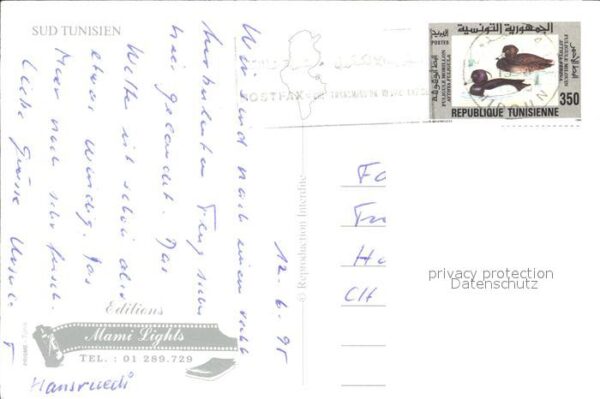 SUD TUNISIEN
12. 6. 95
Wir sind nach einem recht
turbulenten Flug sicher
hier gelandet. Das
Wetter ist schön aber
etwas windig. Das
Meer noch sehr frisch.
Liebe Grüsse Ursula
Hansruedi
Editions
Mami Lights
TEL. : 01 289.729
© Reproduction Interdite
POSTFAX
الجمهورية التونسية
POSTES
FULIGULE MORILLON
AYTHYA FULIGULA
FULIGULE MILOUIN
350
REPUBLIQUE TUNISIENNE
Fa
Ho
CH
privacy protection
Datenschutz